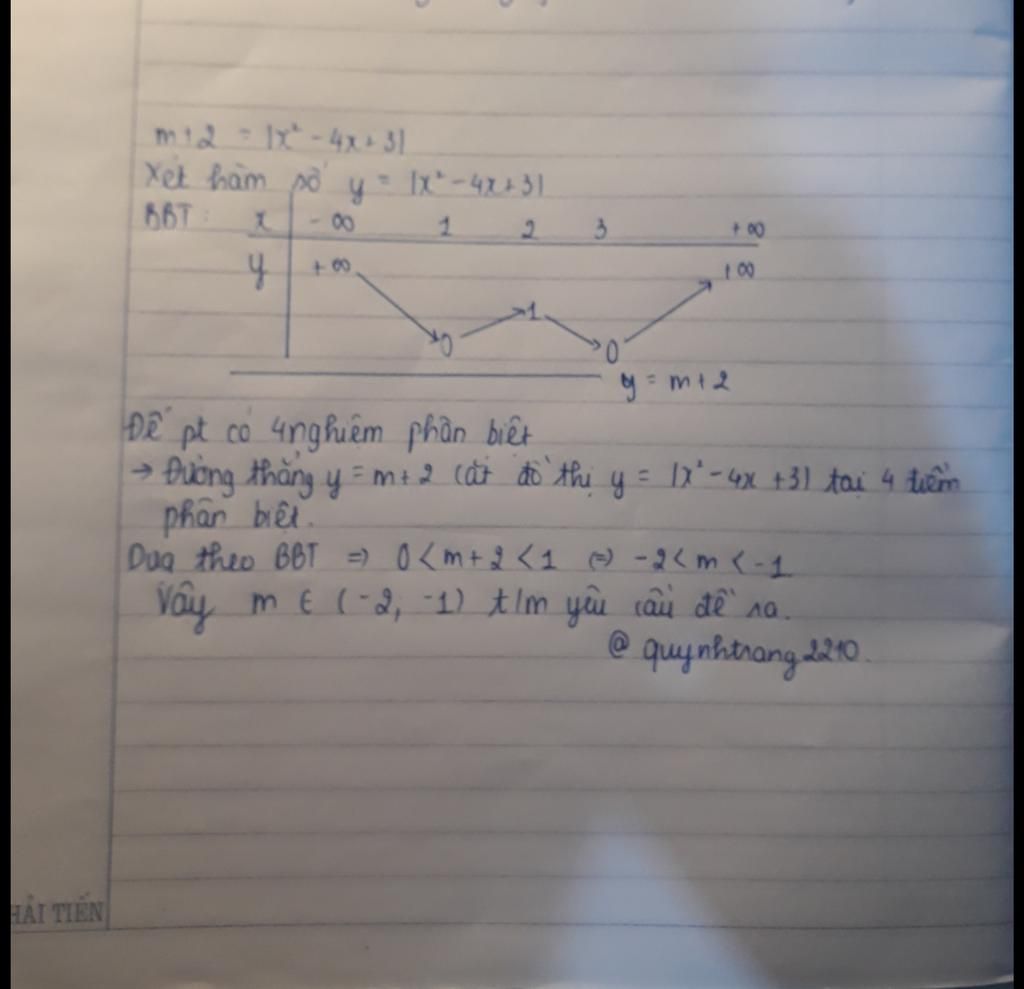 m+2 = |x² - 4x + 3|
Xét hàm số y = |x² - 4x + 3|
BBT: x -∞ 1 2 3 +∞
y +∞ 0 1 0 +∞
y = m+2
Để pt có 4 nghiệm phân biệt
→ Đường thẳng y = m+2 cắt đồ thị y = |x² - 4x + 3| tại 4 điểm
phân biệt.
Dựa theo BBT ⇒ 0 < m+2 < 1 ⇔ -2 < m < -1
Vậy m ∈ (-2, -1) t/m yêu cầu đề ra.
@ quynhtrang2210.
HẢI TIẾN